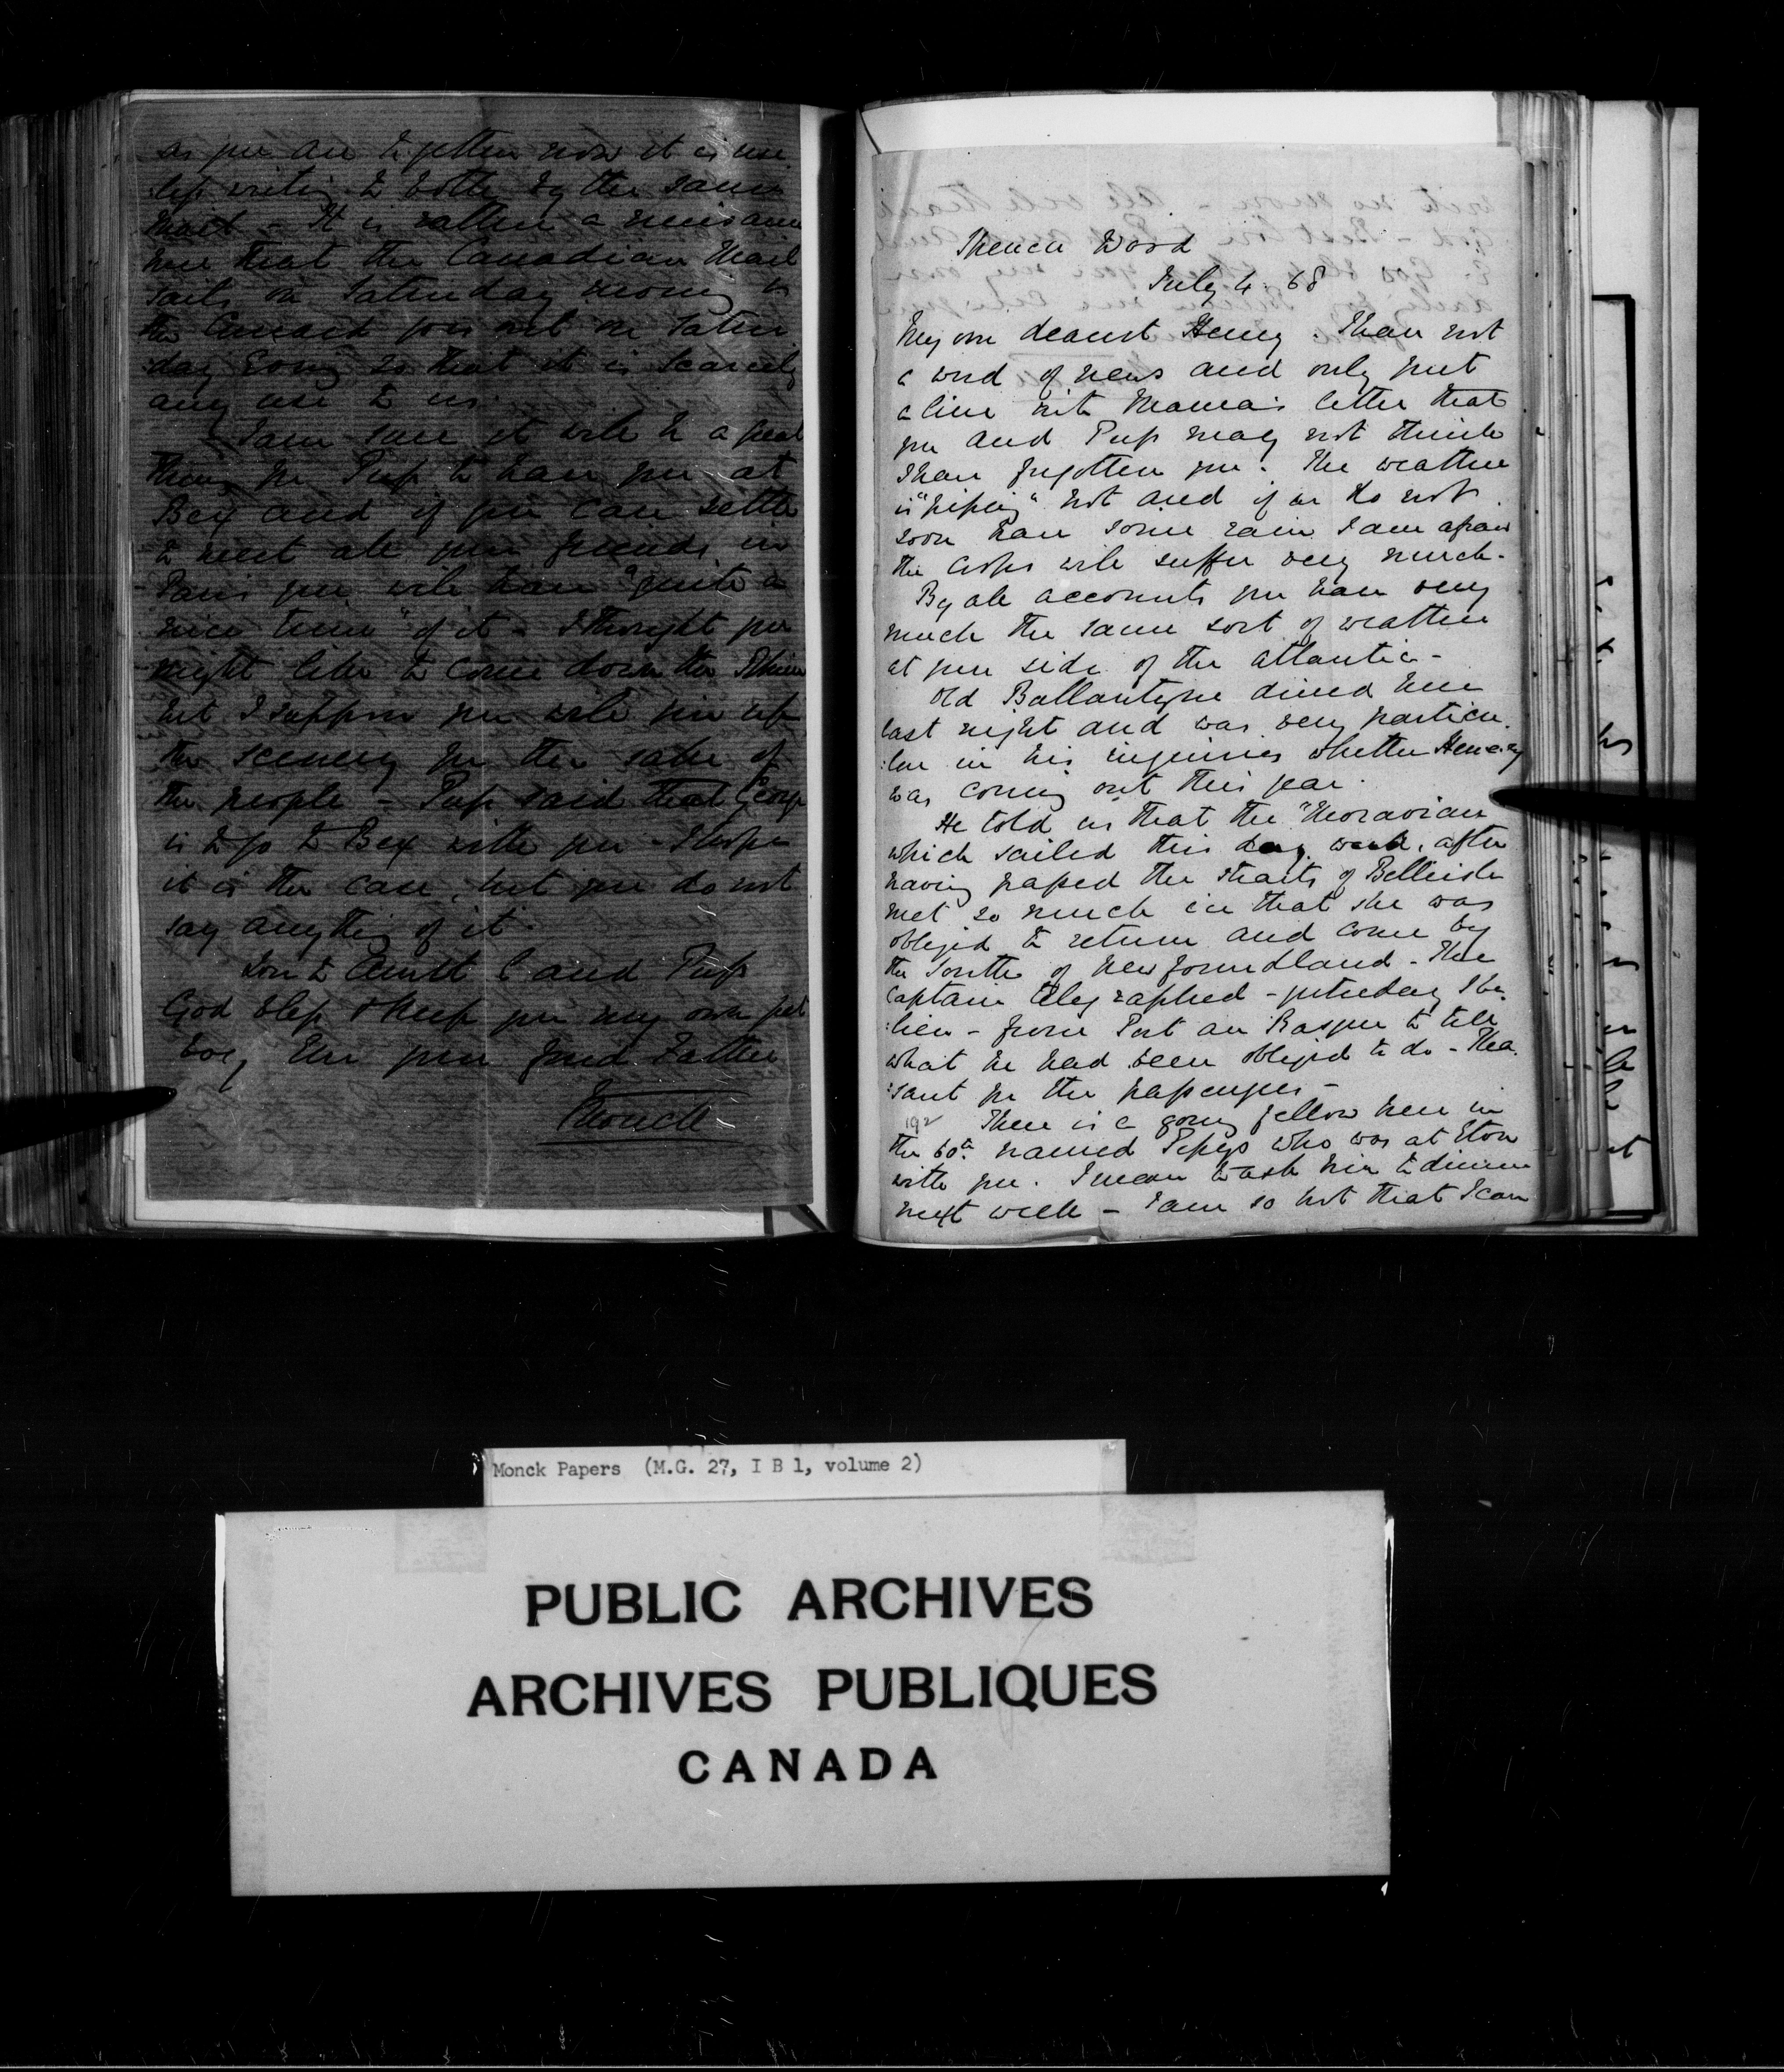 as you are together now it is use
:less writing to both by the same
Mail - It is rather a nuisance
here that the Canadian Mail
sails on Saturday morning as
the Cunard goes out on Satur
:day Evng so that it is scarcely
any use to us.
I am sure it will be a great
thing for Pup to have you at
Bex and if you can settle
to meet all your friends in
Paris you will have "quite a
nice time" of it - I thought you
might like to come down the Rhine
but I suppose you will give up
the scenery for the sake of
the people - Pup said that George
is to go to Bex with you - I hope
it is the case, but you do not
say anything of it.
Love to Aunt C and Pup
God bless & keep you my own pet
boy Ever your fond Father
Monck
Spencer Wood
July 4. 68
My own dearest Henry. I have not
a word of news and only put
a line into Mama's letter that
you and Pup may not think
I have forgotten you. The weather
is "piping" hot and if we do not
soon have some rain I am afraid
the crops will suffer very much.
By all accounts you have very
much the same sort of weather
at your side of the atlantic -
Old Ballantyne dined here
last night and was very particu
:lar in his inquiries whether Henery
was coming out this year.
He told us that the "Moravian
which sailed this day week, after
having passed the straits of Belleisle
met so much ice that she was
obliged to return and come by
the South of Newfoundland - The
Captain telegraphed - yesterday I be
:lieve - from Port au Basque to tell
what he had been obliged to do - Plea
:sant for the passengers -
192
There is a young fellow here in
the 60th named Pepys who was at Eton
with you. I mean to ask him to dinner
next week - I am so hot that I can
Monck Papers (M.G. 27, I B 1, volume 2)
PUBLIC ARCHIVES
ARCHIVES PUBLIQUES
CANADA